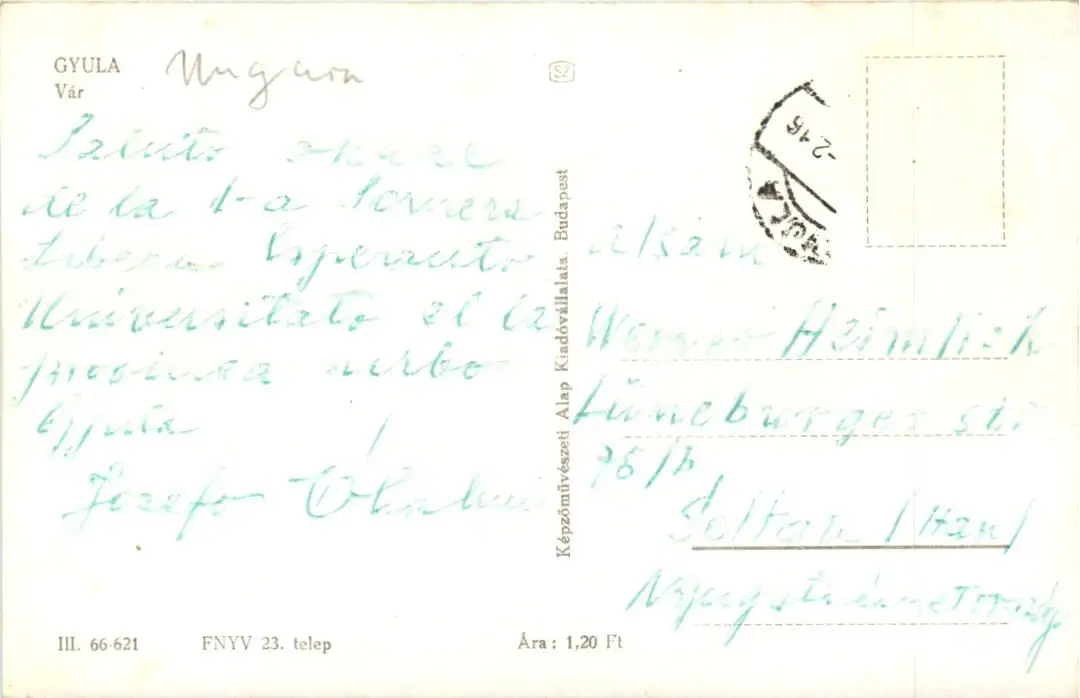 GYULA
Vár
Ungarn
Saluto okaze
de la 1-a Somera
Libera Esperanto
Universitato el la
provinca urbo
Gyula
Jozefo
SZ
Képzőművészeti Alap Kiadóvállalata, Budapest
-2.16
Werner Heimlich
Lüneburger str.
75/b
Soltau / Han/
Nyugatnémetország
III. 66-621
FNYV 23. telep
Ára: 1,20 Ft